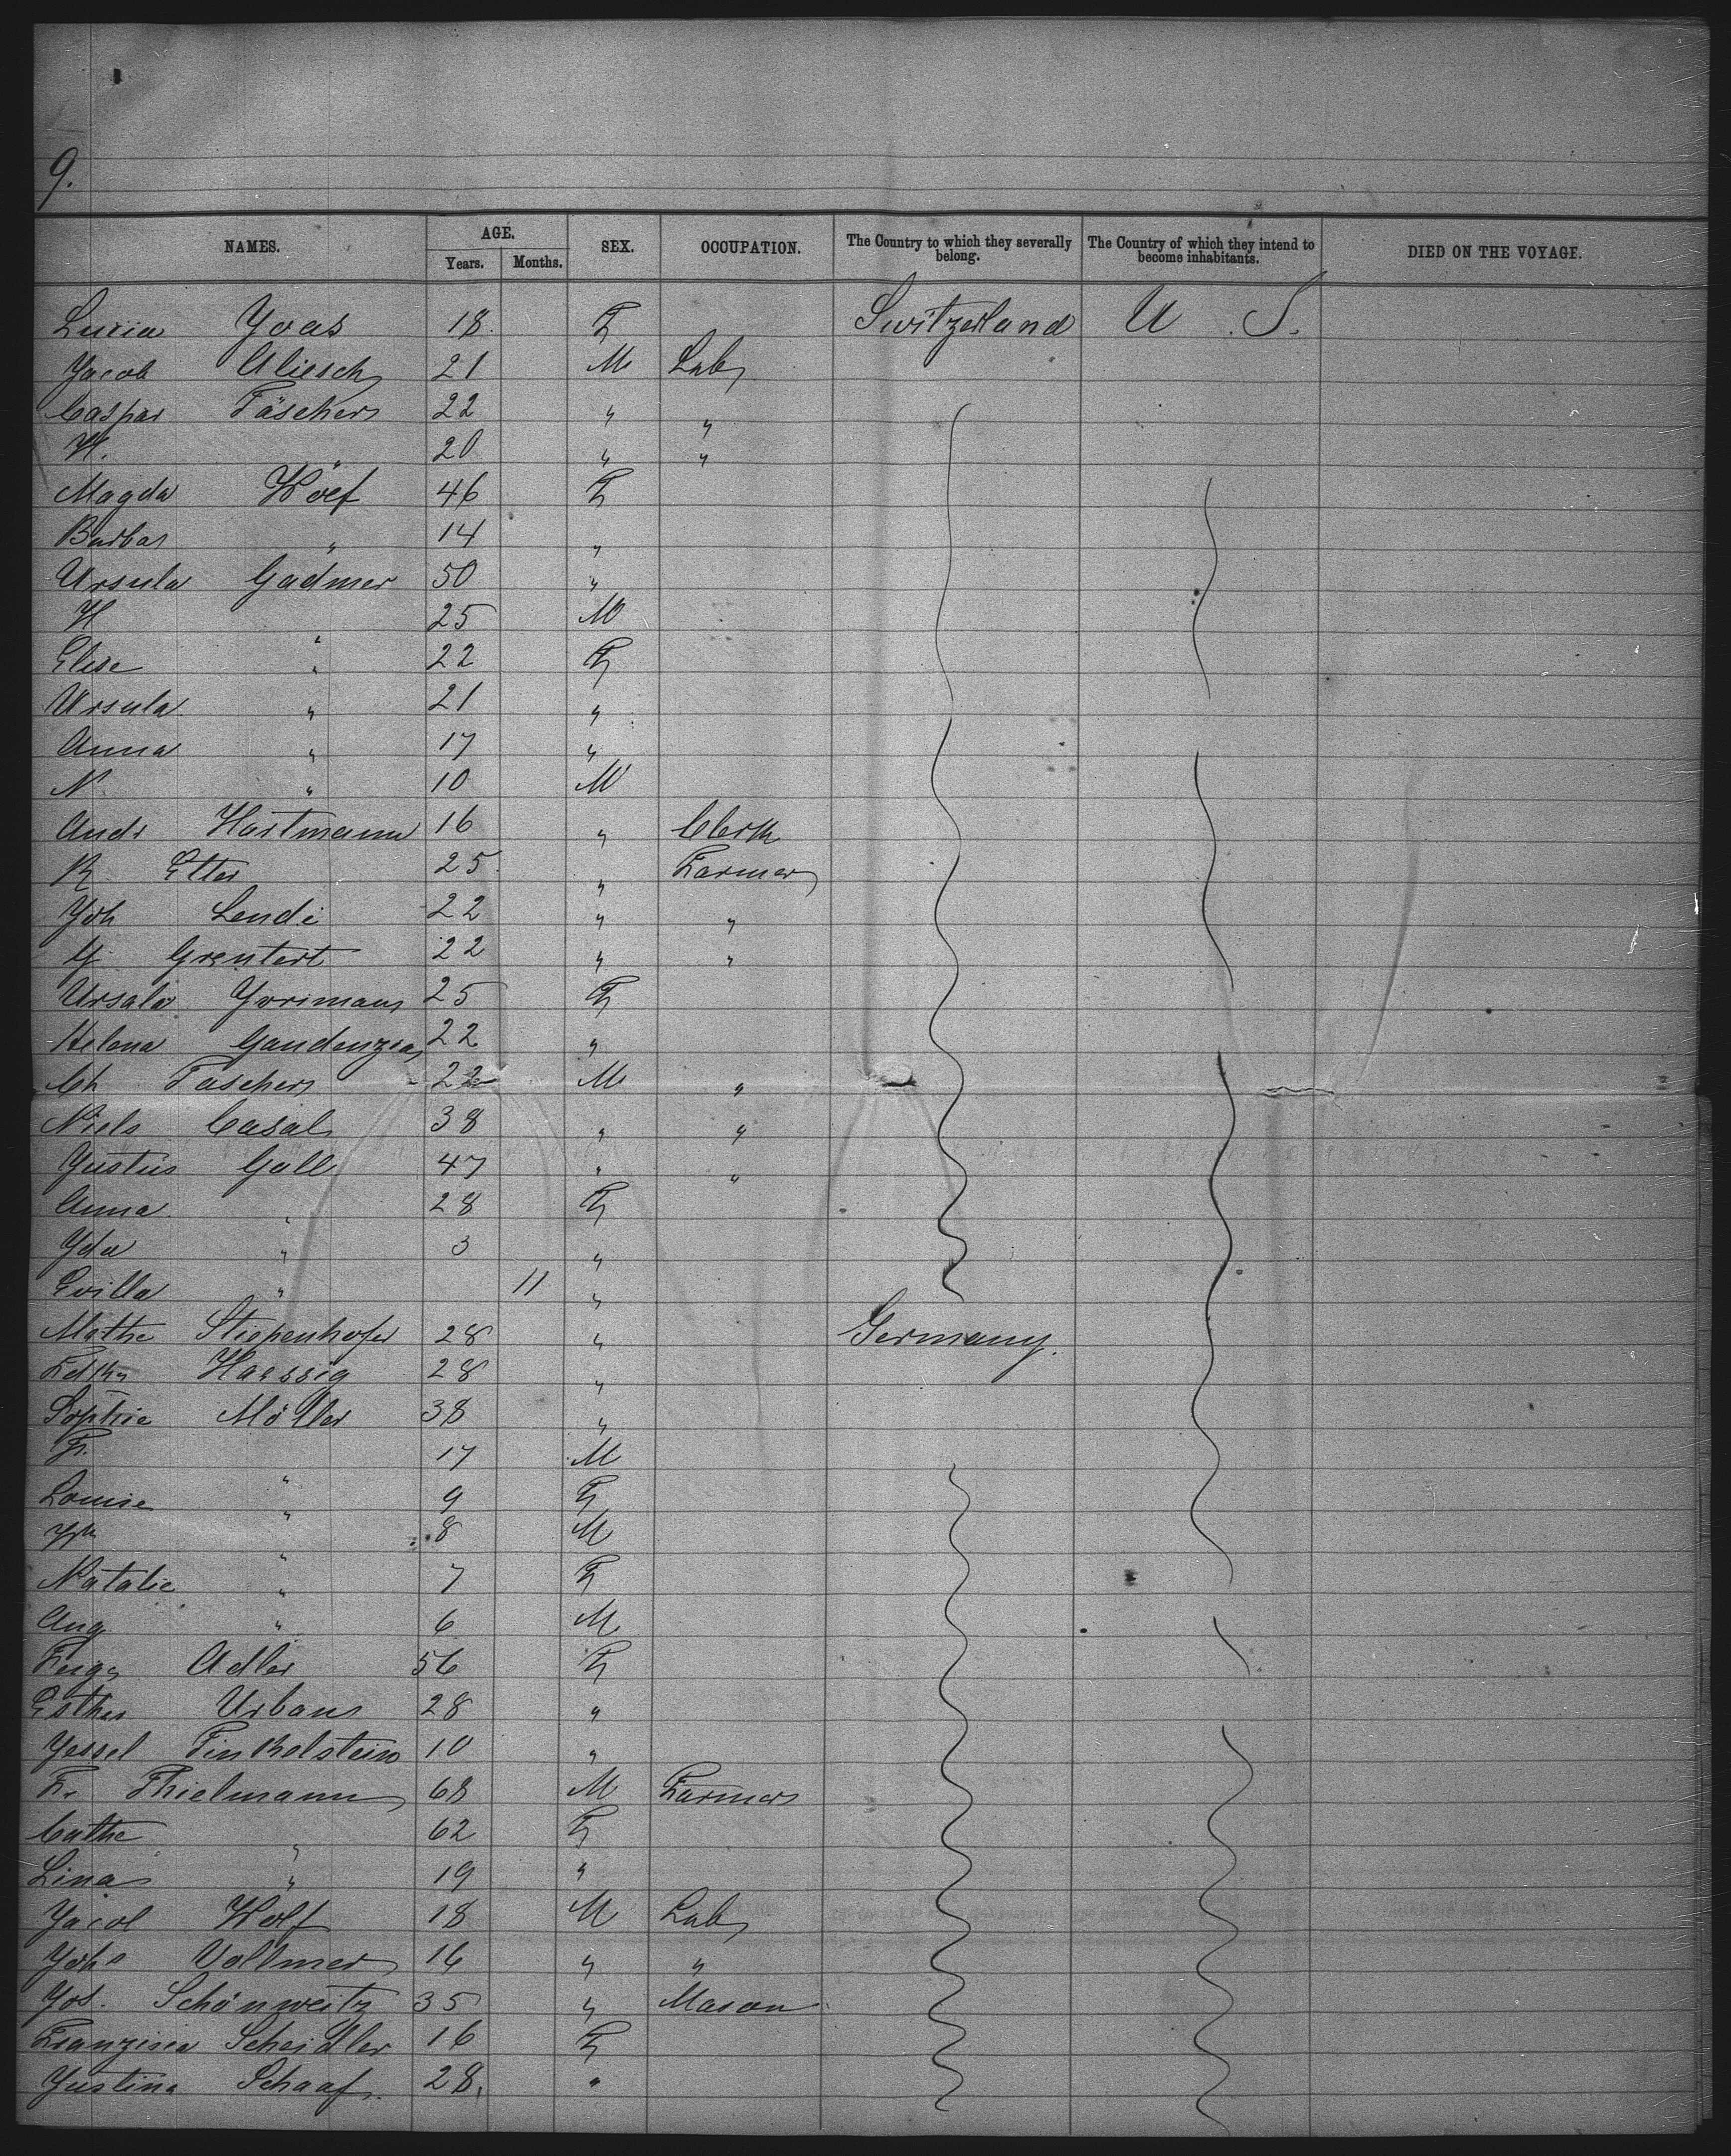 9.
NAMES. AGE. SEX. OCCUPATION. The Country to which they severally belong. The Country of which they intend to become inhabitants. DIED ON THE VOYAGE.
Years. Months.
Luzia Joas 18 F Switzerland U. S.
Jacob Aliesch 21 M Lab
Caspar Täscher 22 " "
H. " 20 " "
Magda Wolf 46 F
Barbar " 14 "
Ursula Gadmer 50 "
H " 25 M
Elise " 22 F
Ursula " 21 "
Anna " 17 "
N. " 10 M
Andr Hartmann 16 " Clerk
R Etter 25 " Farmer
Joh Lendi 22 " "
G. Greutert 22 " "
Ursala Jorimann 25 F
Helena Gaudenzia 22 "
Ch Tascher 22 M "
Niels Casal 38 " "
Justus Gall 47 " "
Anna " 28 F
Ida " 3 "
" 11 "
Mathe Stiepenhofer 28 " Germany.
Haessig 28 "
Sophie Möller 38 "
Fr. " 17 M
Louise " 9 F
Joh " 8 M
Natalie " 7 F
Aug " 6 M
Adler 56 F
Esther Urban 28 "
Jessel Finkelstein 10 "
F. Thielmann 68 M Farmer
Cathe " 62 F
Lina " 19 "
Jacob Wolf 18 M Lab
Johs Vollmer 16 " "
Jos. Schönweitz 35 " Mason
Franzisca Scheidler 16 F
Justina Schaaf. 28. "